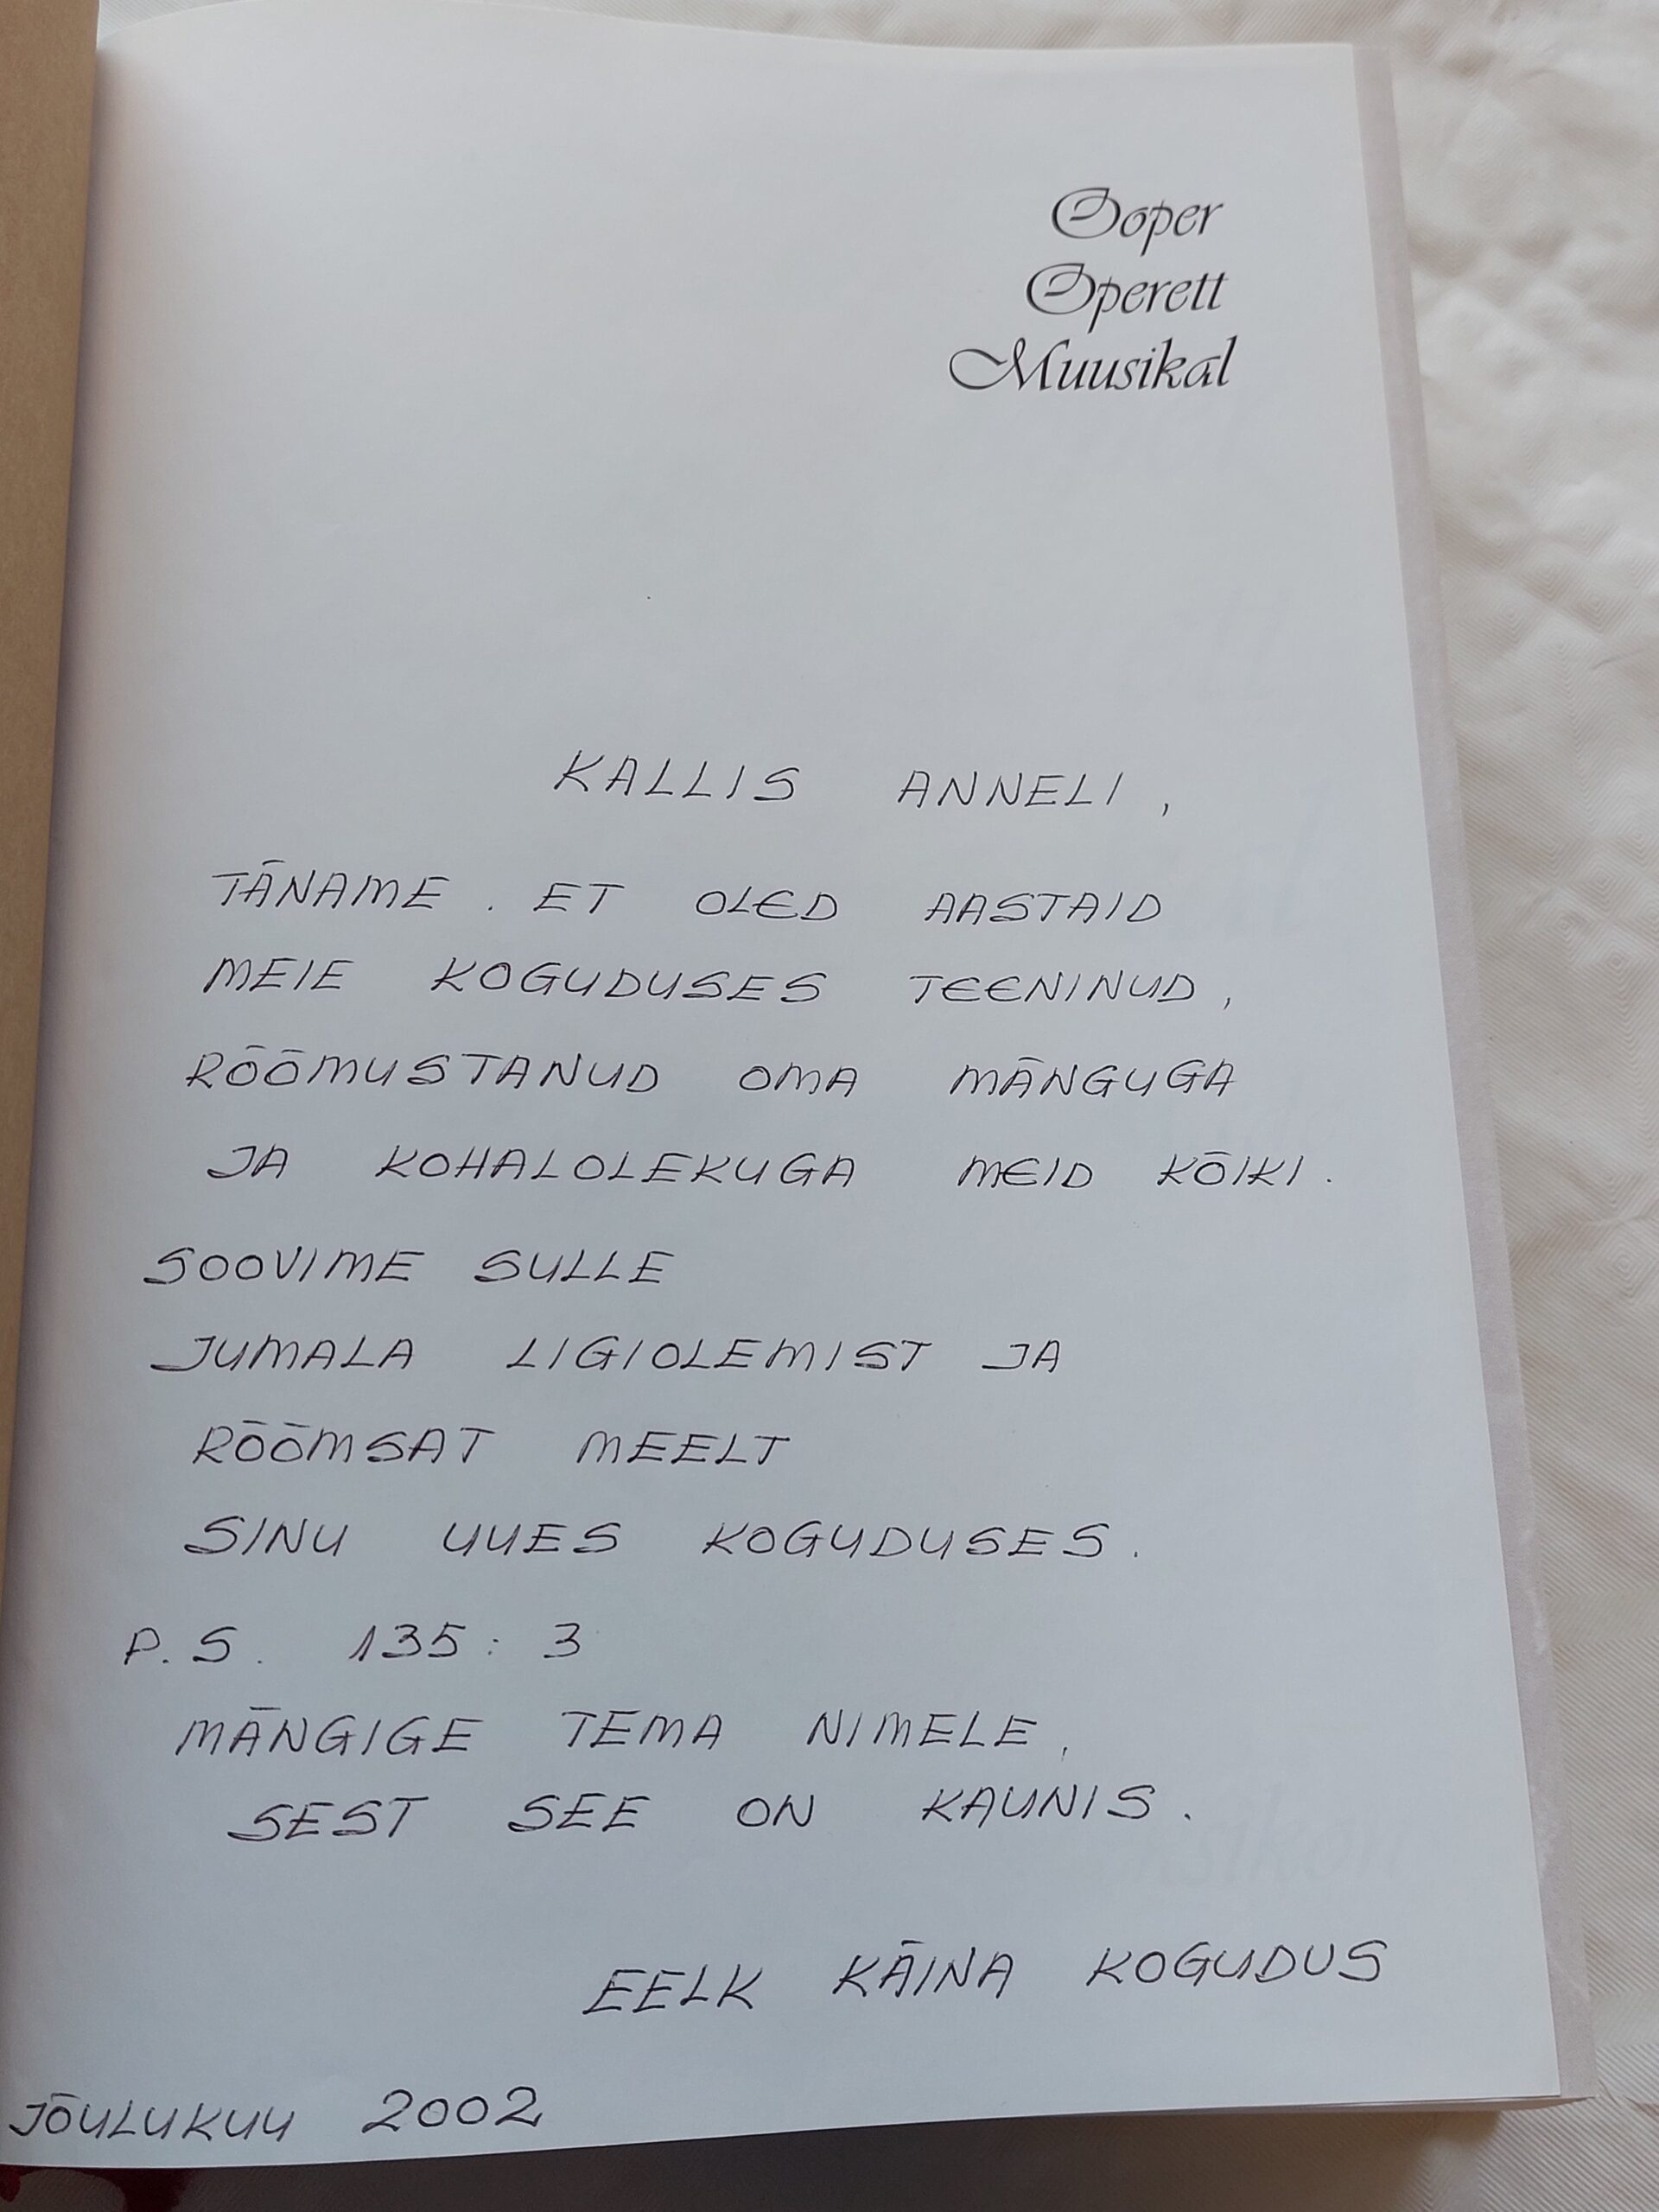 Ooper
Operett
Muusikal
KALLIS ANNELI,
TÄNAME. ET OLED AASTAID
MEIE KOGUDUSES TEENINUD,
RÕÕMUSTANUD OMA MÄNGUGA
JA KOHALOLEKUGA MEID KÕIKI.
SOOVIME SULLE
JUMALA LIGIOLEMIST JA
RÕÕMSAT MEELT
SINU UUES KOGUDUSES.
P.S. 135:3
MÄNGIGE TEMA NIMELE,
SEST SEE ON KAUNIS.
EELK KÄINA KOGUDUS
JÕULUKUU 2002